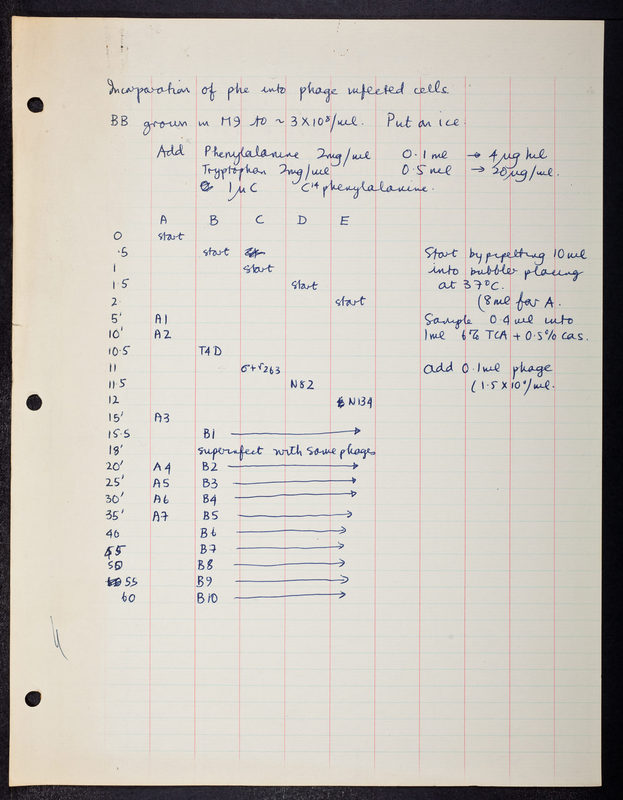 Incorporation of phe into phage infected cells
BB grown in M9 to ~ 3 X 10⁸/ml. Put on ice.
Add Phenylalanine 2mg/ml 0.1 ml → 4 µg/ml
Tryptophan 2mg/ml 0.5 ml → 20 µg/ml.
1 µC C¹⁴ phenylalanine.
A B C D E
0 start
.5 start Start by pipetting 10 ml
1 start into bubbler placing
1.5 start at 37°C.
2 start (8 ml for A.
5' A1 Sample 0.4 ml into
10' A2 1ml 6% TCA + 0.5% cas.
10.5 T4D
11 σ+r263 add 0.1 ml phage
11.5 N82 (1.5 X 10 /ml.
12 N134
15' A3
15.5 B1 →
18' superinfect with same phages
20' A4 B2 →
25' A5 B3 →
30' A6 B4 →
35' A7 B5 →
40 B6 →
45 B7 →
50 B8 →
55 B9 →
60 B10 →